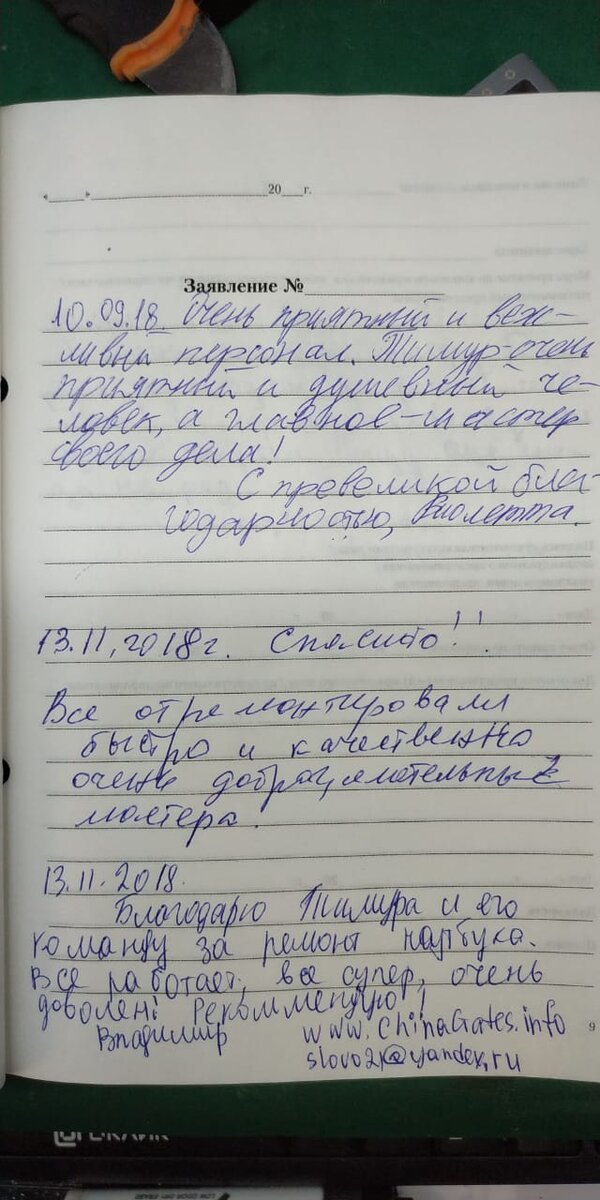 «______»______________________20___г.
Заявление №______________
10.09.18. Очень приятный и веж-
ливый персонал. Тимур-очень
приятный и душевный че-
ловек, а главное-мастер
своего дела!
С превеликой благ-
годарностью, Виолетта.
13.11.2018г. Спасибо!!
Все отремонтировали
быстро и качественно
очень доброжелательные
мастера.
13.11.2018.
Благодарю Тимура и его
команду за ремонт
Всё работает, всё супер, очень
доволен! Рекоммендую!
Владимир www.ChinaGates.info
slovo21@yandex.ru
9